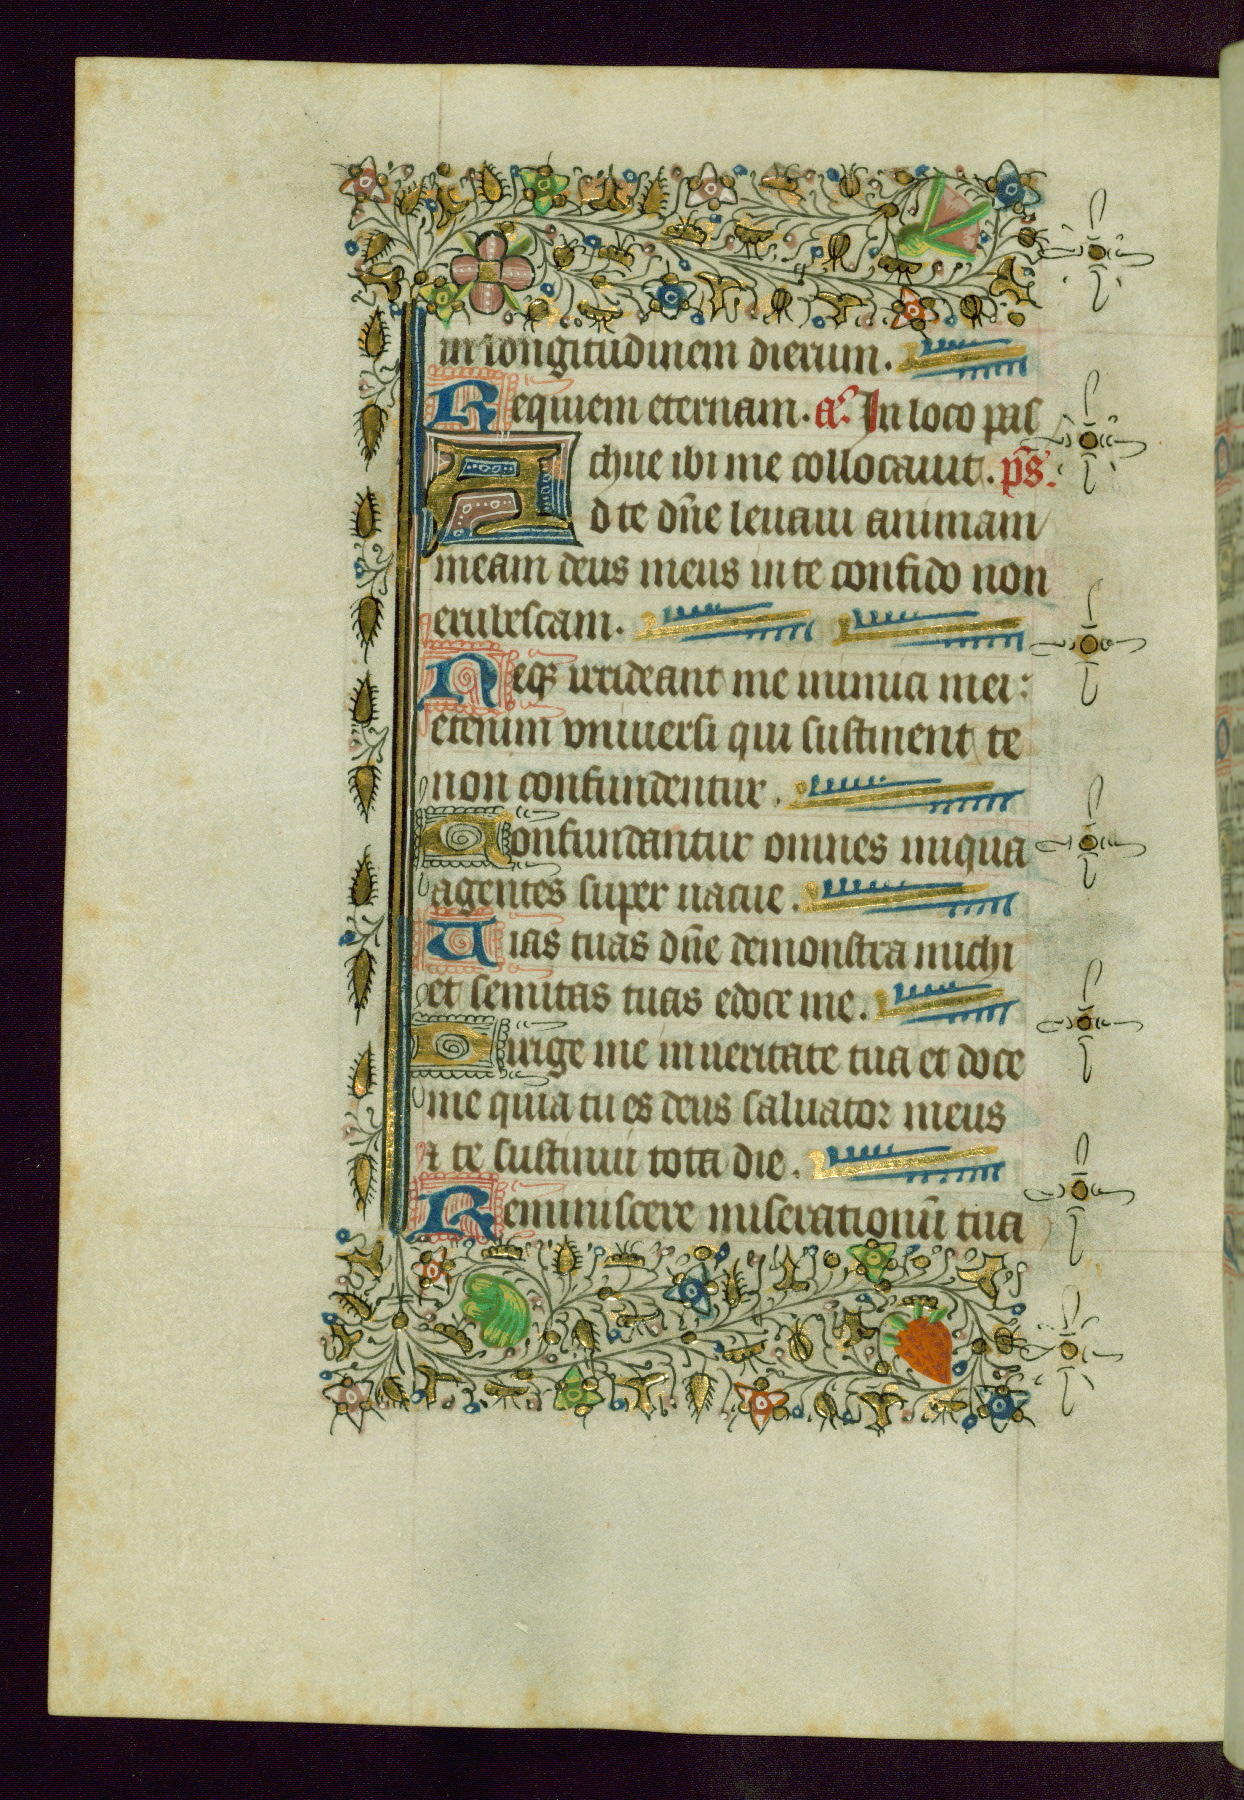 in longitudinem dierum.
Requiem eternam. añ. In loco pas
chue ibi me collocauit. p̄s.
Ad te dn̄e leuaui animam
meam deus meus in te confido non
erubescam.
Neqꝫ irrideant me inimici mei:
etenim vniuersi qui sustinent te
non confundentur.
Confundantur omnes iniqua
agentes super uacue.
Uias tuas dn̄e demonstra michi
et semitas tuas edoce me.
Dirige me in ueritate tua et doce
me quia tu es deus saluator meus
⁊ te sustinui tota die.
Reminiscere miserationū tua